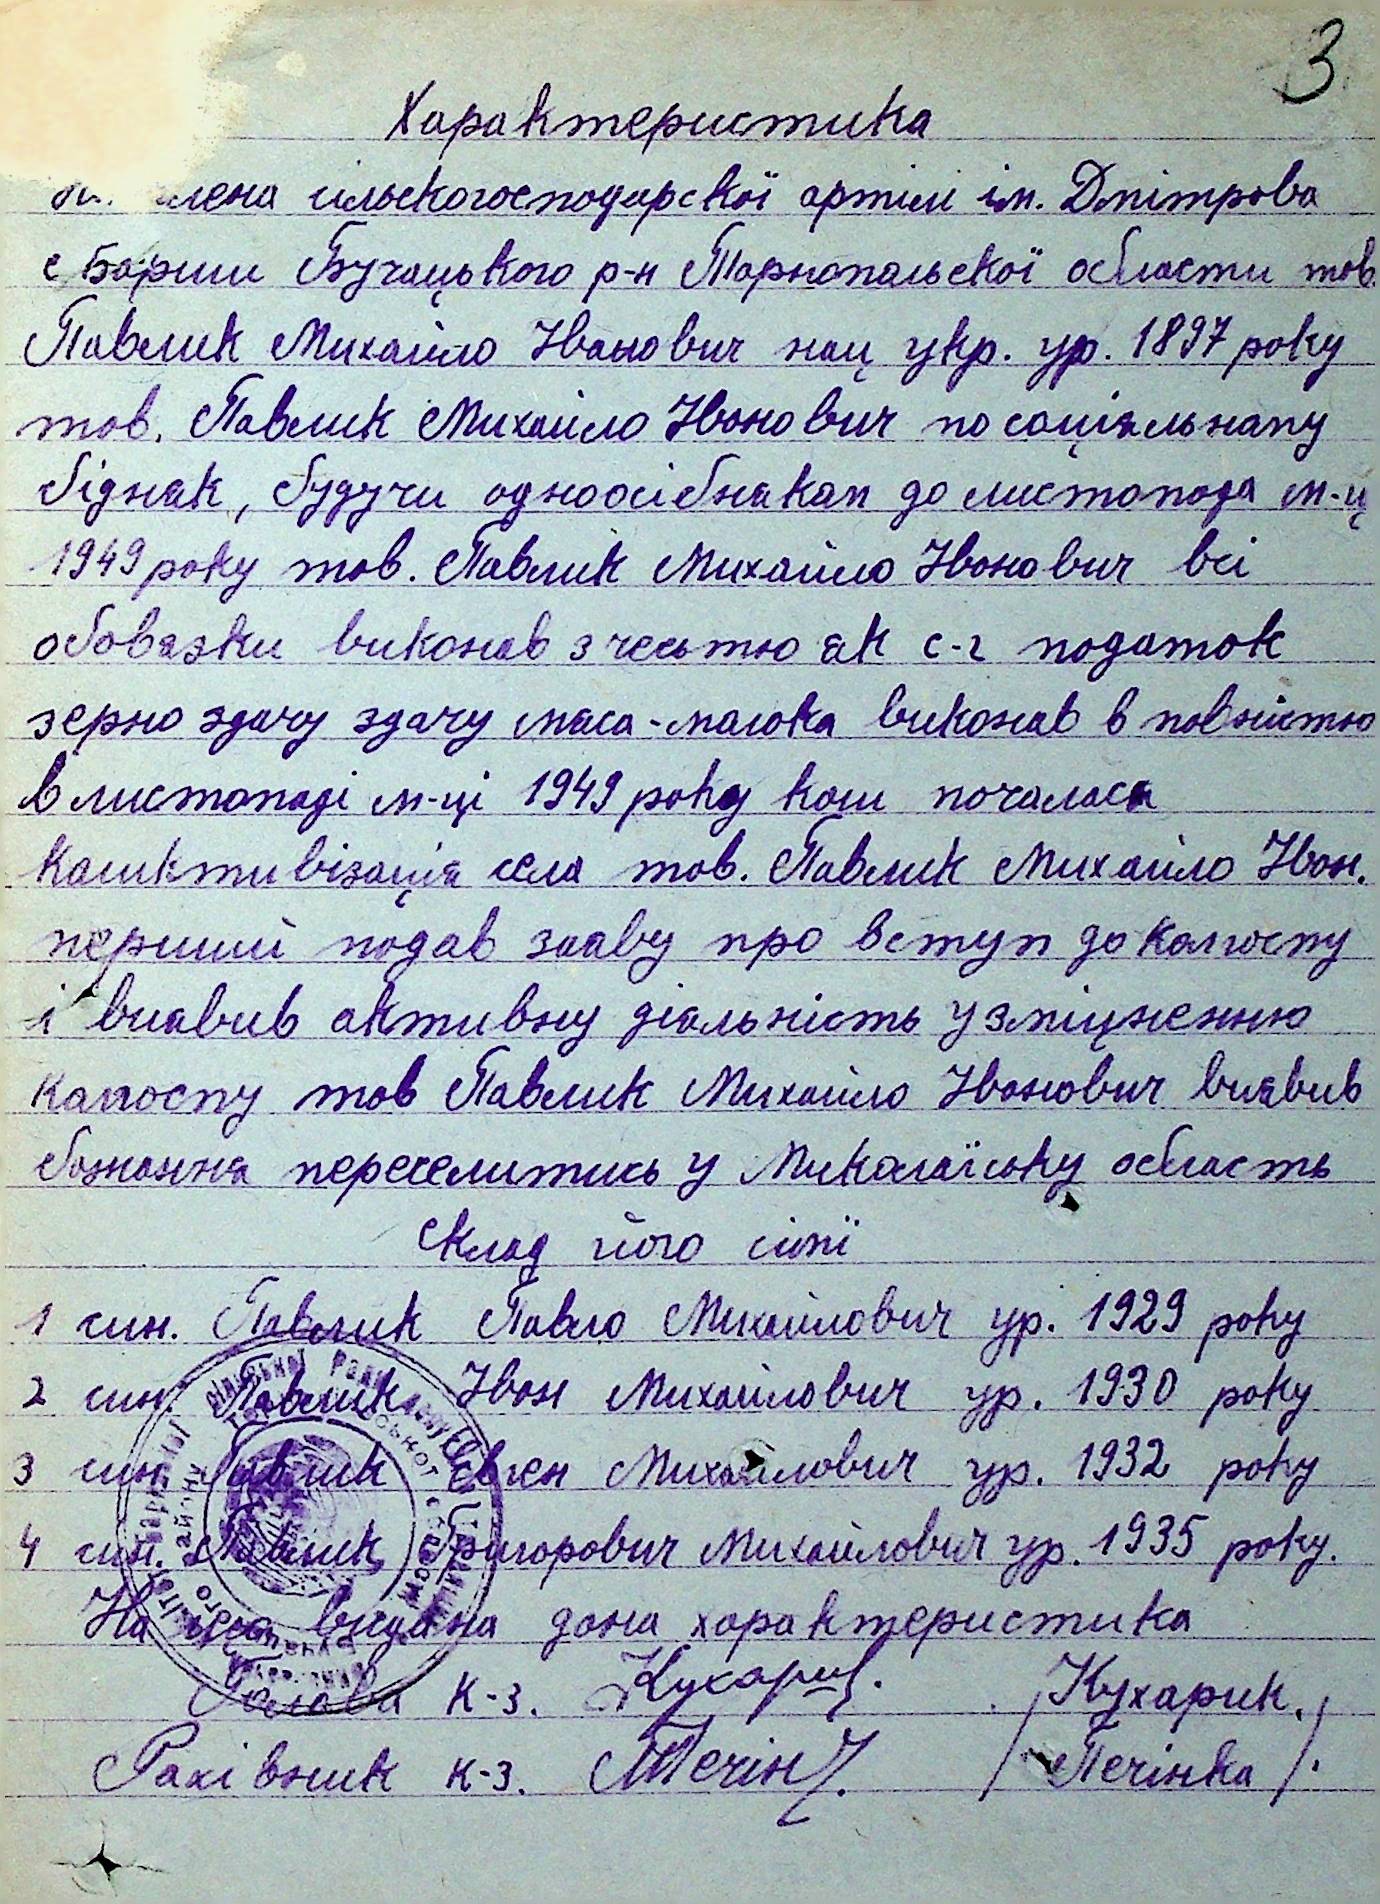 3
Характеристика
члена сільскогосподарскої артілі ім. Дмітрова
с Бариш Бучацького р-н Тарнопальскої области тов.
Павлик Михайло Іванович нац укр. ур. 1897 року
тов. Павлик Михайло Іванович по соціяльнаму
бідняк, будучи одноосібнякам до листопада м-ц
1949 року тов. Павлик Михайло Іванович всі
обовязки виконав з чесьтю як с-г податок
зерно здачу здачу мяса-малока виконав в повністю
в листопаді м-ці 1949 року коли почалася
каликтивізація села тов. Павлик Михайло Іван.
перший подав заяву про вступ до колгоспу
і виявив активну діяльність у зміцненню
калгоспу тов Павлик Михайло Іванович виявив
бажання переселитись у Миколаїську область
Склад його сімї
1 син. Павлик Павло Михайлович ур. 1929 року
2 син. Павлик Іван Михайлович ур. 1930 року
3 син Павлик Євген Михайлович ур. 1932 року
4 син. Павлик Григорович Михайлович ур. 1935 року.
На що видана дана характеристика
Галова к-з. Кухарик. /Кухарик./
Рахівник к-з. Печін /Печінка/.